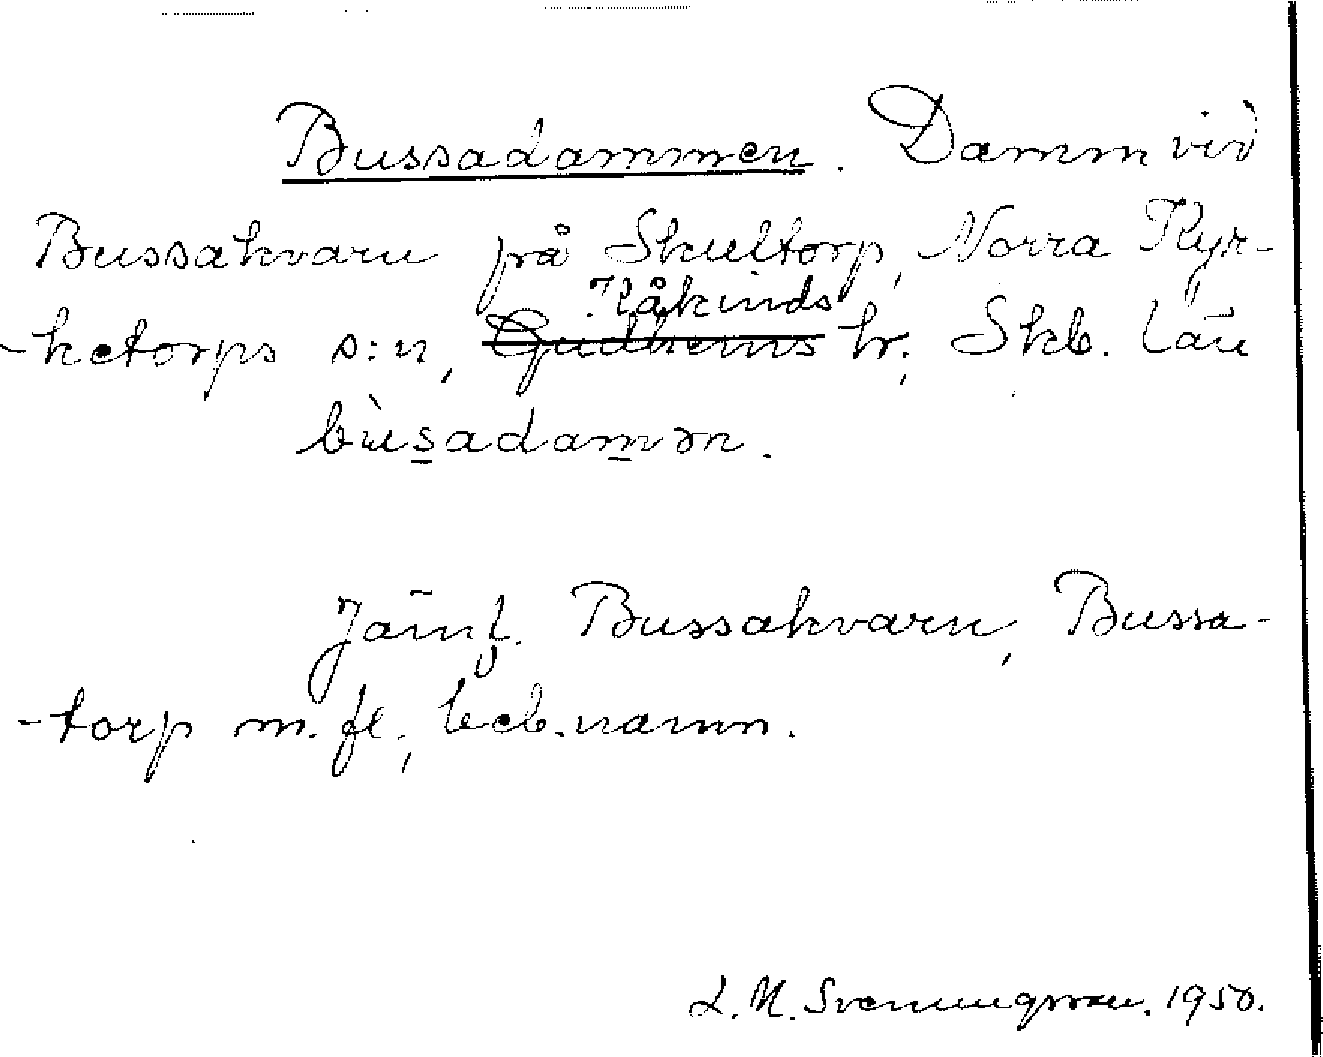 Bussadammen. Damm vid
Bussakvarn på Skultorp, Norra Kyr-
Kåkinds
-ketorps s:n, Gudhems hr., Skb. län
bùsadamən.
Jämf. Bussakvarn, Bussa-
-torp m. fl., beb.namn.
L. M. Svenungsson. 1950.